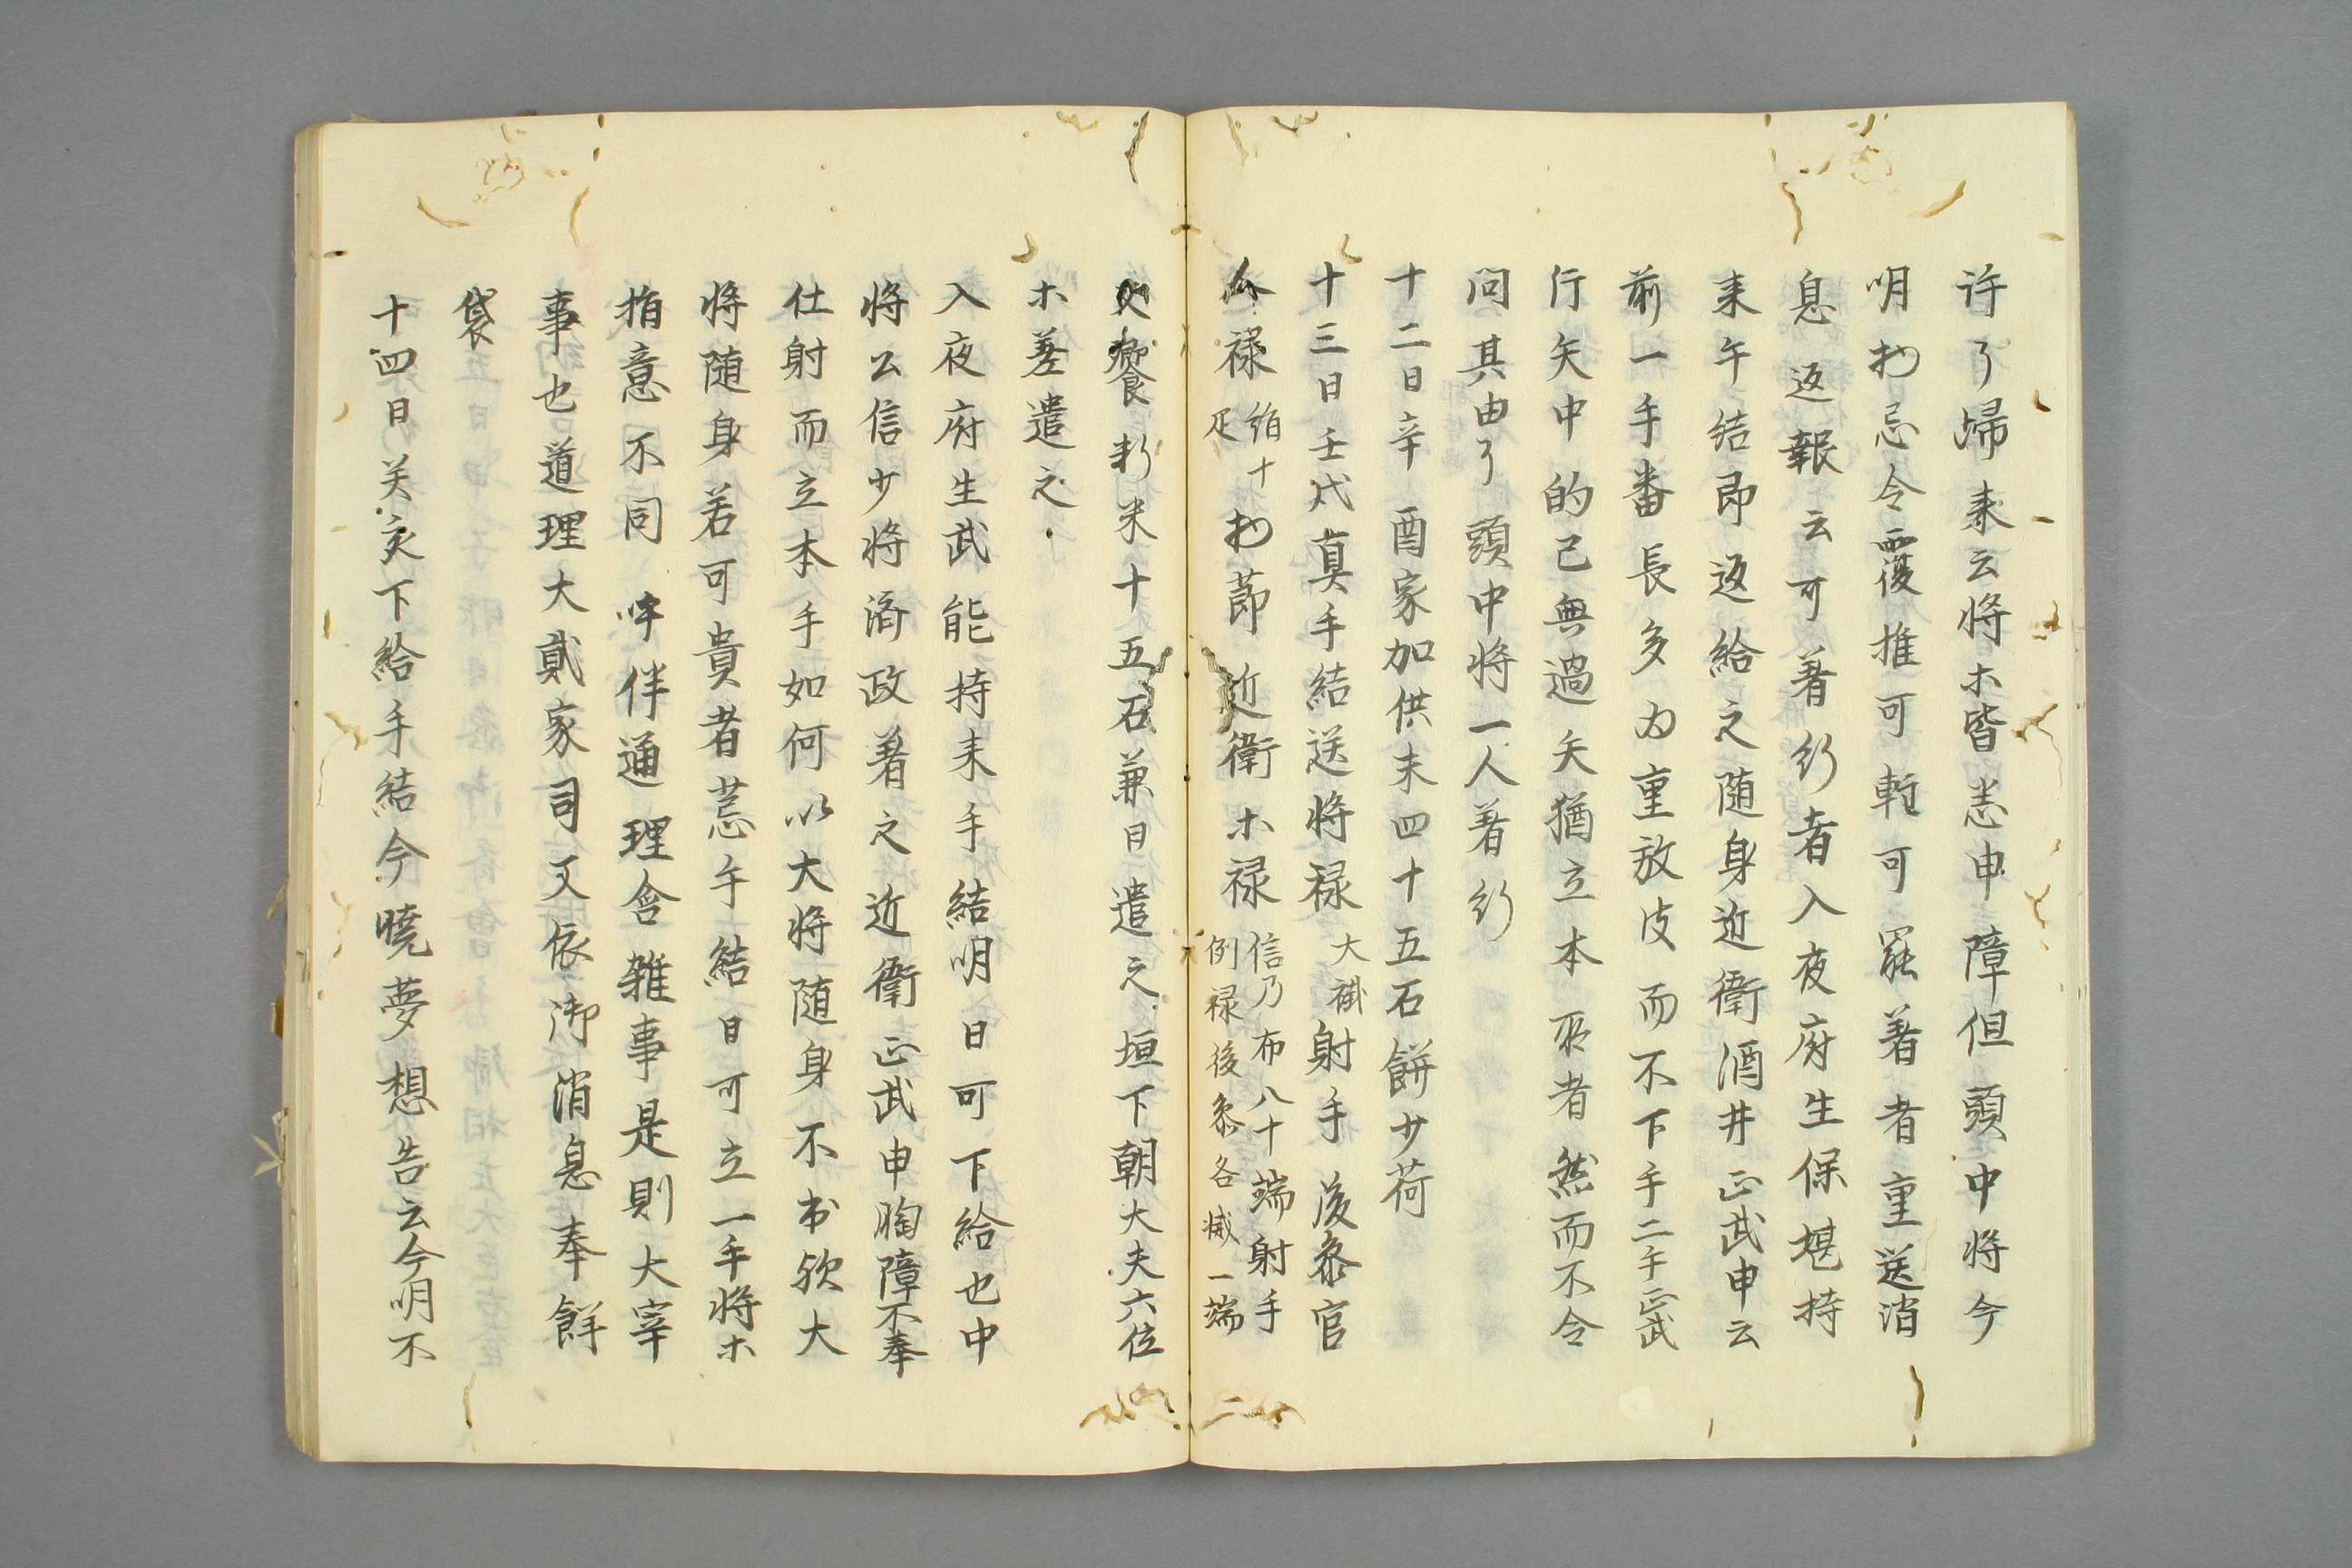 許了歸来云将木皆恙申障但頭中将今
明物忌令覆推可暫可罷著者重送消
息返報云可著行者入夜府生保堪持
来午結即返給之随身近衛酒井正武申云
前一手番長多為重放皮而不下手二午正武
行矢中的已無過矢猶立本所者然而不令
問其由了頭中将一人著行
十二日辛酉家加供末四十五石餅少荷
十三日壬戌真手結送将禄大褂射手後参官
人禄絹十疋物節近衛木禄信乃布八十端射手例禄後参各减一端
饗新米十五石兼日遣之垣下朝大夫六位
木差遣之
入夜府生武能持来手結明日可下給也中
将公信少将済政著之近衛正武申胸障不奉
仕射而立本手如何以大将随身不書欤大
将随身若可貴者荒午結日可立一手将木
指意不同呼伴通理含雑事是則大宰
事也道理大貳家司又依御消息奉餅
袋
十四日癸亥下給手結今曉夢想告云今明不